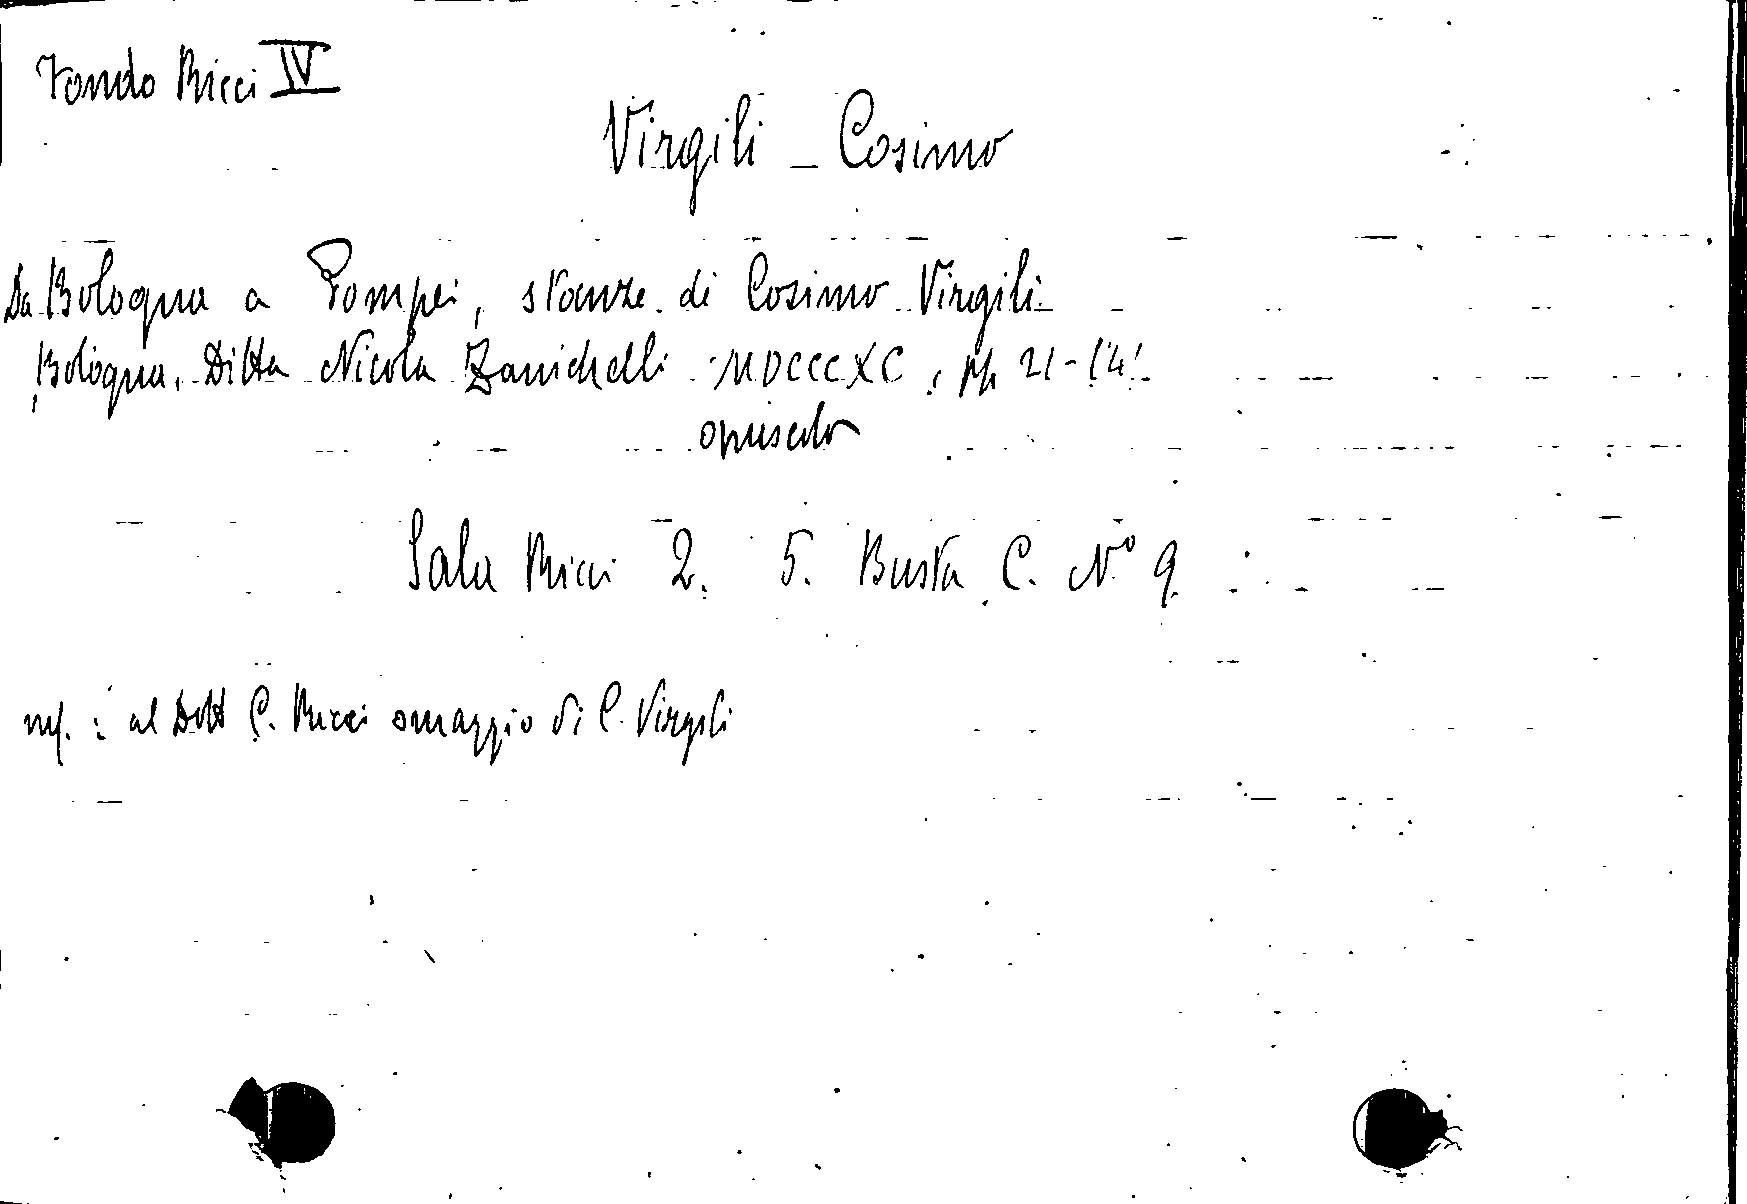 Fondo Ricci IV
Virgili - Cosimo
Da Bologna a Pompei, stanze di Cosimo Virgili
Bologna, Ditta Nicola Zanichelli MDCCCXC, pp 21-(4!
opuscolo
Sala Ricci 2. 5. Busta C. N° 9
mf. : al Dott C. Ricci omaggio di C. Virgili